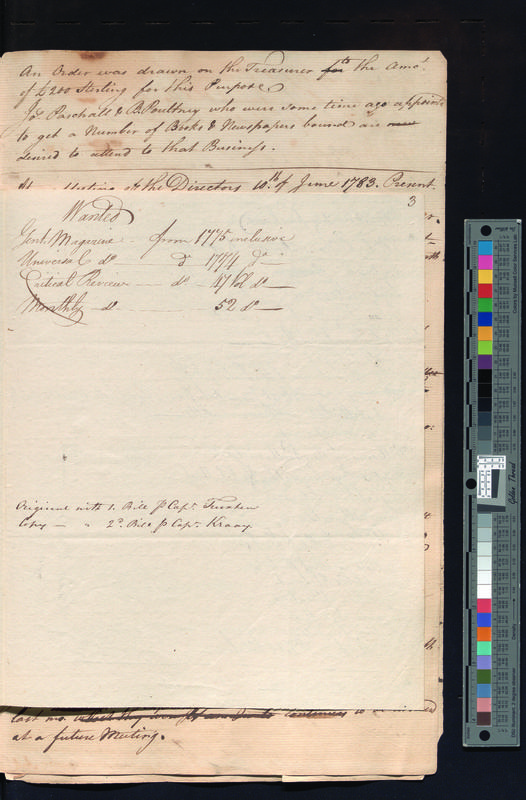 An Order was drawn on the Treasurer for the Amot.
of £200 Sterling for this Purpose
Jos Paschall & B. Poultney who were some time ago appoint
to get a Number of Books & Newspapers bound are
desired to attend to that Business.
At meeting of the Directors 10th. of June 1783. Present.
3
Wanted
Gent. Magazine - from 1775 inclusive
Universal do do 1774 do
Critical Review do 47 Vol do
Monthly do 52 do
Original with 1. Bill p Capt. Truxtun
Copy - " 2d. Bill p Capt. Kraay
last mo. which they
at a future Meeting.